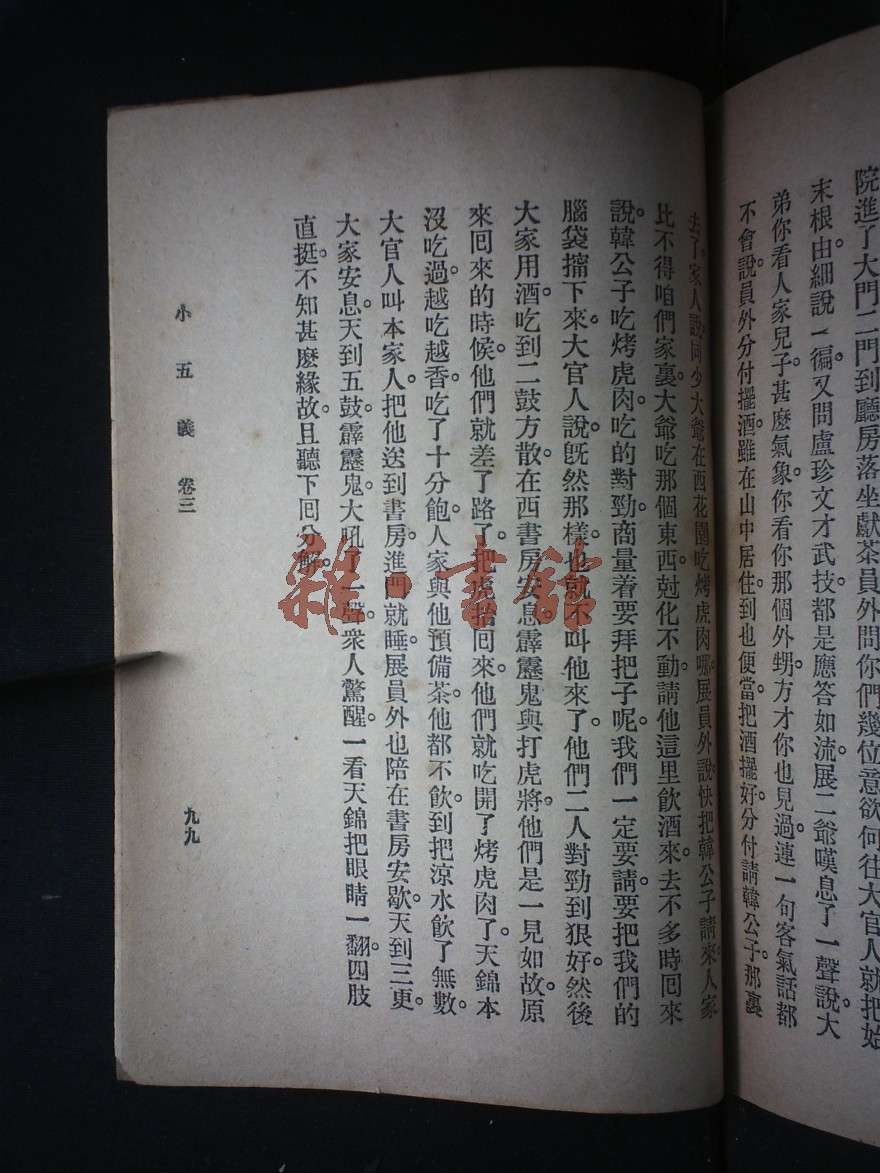 院進了大門二門到廳房落坐獻茶員外問你們幾位意欲何往大官人就把始
末根由細說一徧又問盧珍文才武技都是應答如流展二爺嘆息了一聲說大
弟你看人家兒子甚麽氣象你看你那個外甥方才你也見過連一句客氣話都
不會說員外分付擺酒雖在山中居住到也便當把酒擺好分付請韓公子那裏
去了家人說同少大爺在西花園吃烤虎肉哪展員外說快把韓公子請來人家
比不得咱們家裏大爺吃那個東西尅化不動請他這里飲酒來去不多時回來
說韓公子吃烤虎肉吃的對勁商量着要拜把子呢我們一定要請要把我們的
腦袋擰下來大官人說旣然那樣也就不叫他來了他們二人對勁到狠好然後
大家用酒吃到二鼓方散在西書房安息霹靂鬼與打虎將他們是一見如故原
來回來的時候他們就差了路了把虎捨回來他們就吃開了烤虎肉了天錦本
沒吃過越吃越香吃了十分飽人家與他預備茶他都不飲到把涼水飲了無數
大官人叫本家人把他送到書房進門就睡展員外也陪在書房安歇天到三更
大家安息天到五鼓霹靂鬼大吼了一聲衆人驚醒一看天錦把眼睛一翻四肢
直挺不知甚麽緣故且聽下回分解
小五義 卷三 九九
雜·書館